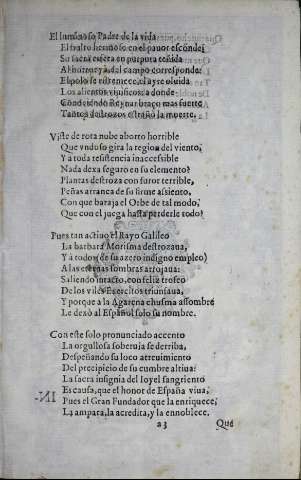 El luminoso Padre de la vida
El rostro hermoso en el pauor esconde;
Su sacra esfera en purpura teñida
Al horror ya del campo corresponde:
El polo se estremece, el ayre oluida
Los alientos viuificos: a donde
Conociendo Reynar braço mas fuerte
Tantos destrozos estrañò la muerte.
Viste de rota nube aborto horrible
Que vndoso gira la region del viento,
Y a toda resistencia inaccessible
Nada dexa seguro en su elemento?
Plantas destroza con furor terrible,
Peñas arranca de su firme assiento,
Con que baraja el Orbe de tal modo,
Que con el juega hasta perderle todo?
Pues tan actiuo el Rayo Galileo
La barbara Morisma destrozaua,
Y à todos (de su azero indigno empleo)
A las eternas sombras arrojaua:
Saliendo intacto, con feliz trofeo
De los viles Exercitos triunfaua,
Y porque a la Agarena chusma assombre
Le dexò al Español solo su nombre.
Con este solo pronunciado accento
La orgullosa soberuia se derriba,
Despeñando su loco atreuimiento
Del precipicio de su cumbre altiua:
La sacra insignia del Ioyel sangriento
Es causa, que el honor de España viua,
Pues el Gran Fundador que la enriquece,
La ampara, la acredita, y la ennoblece.
a3 Que